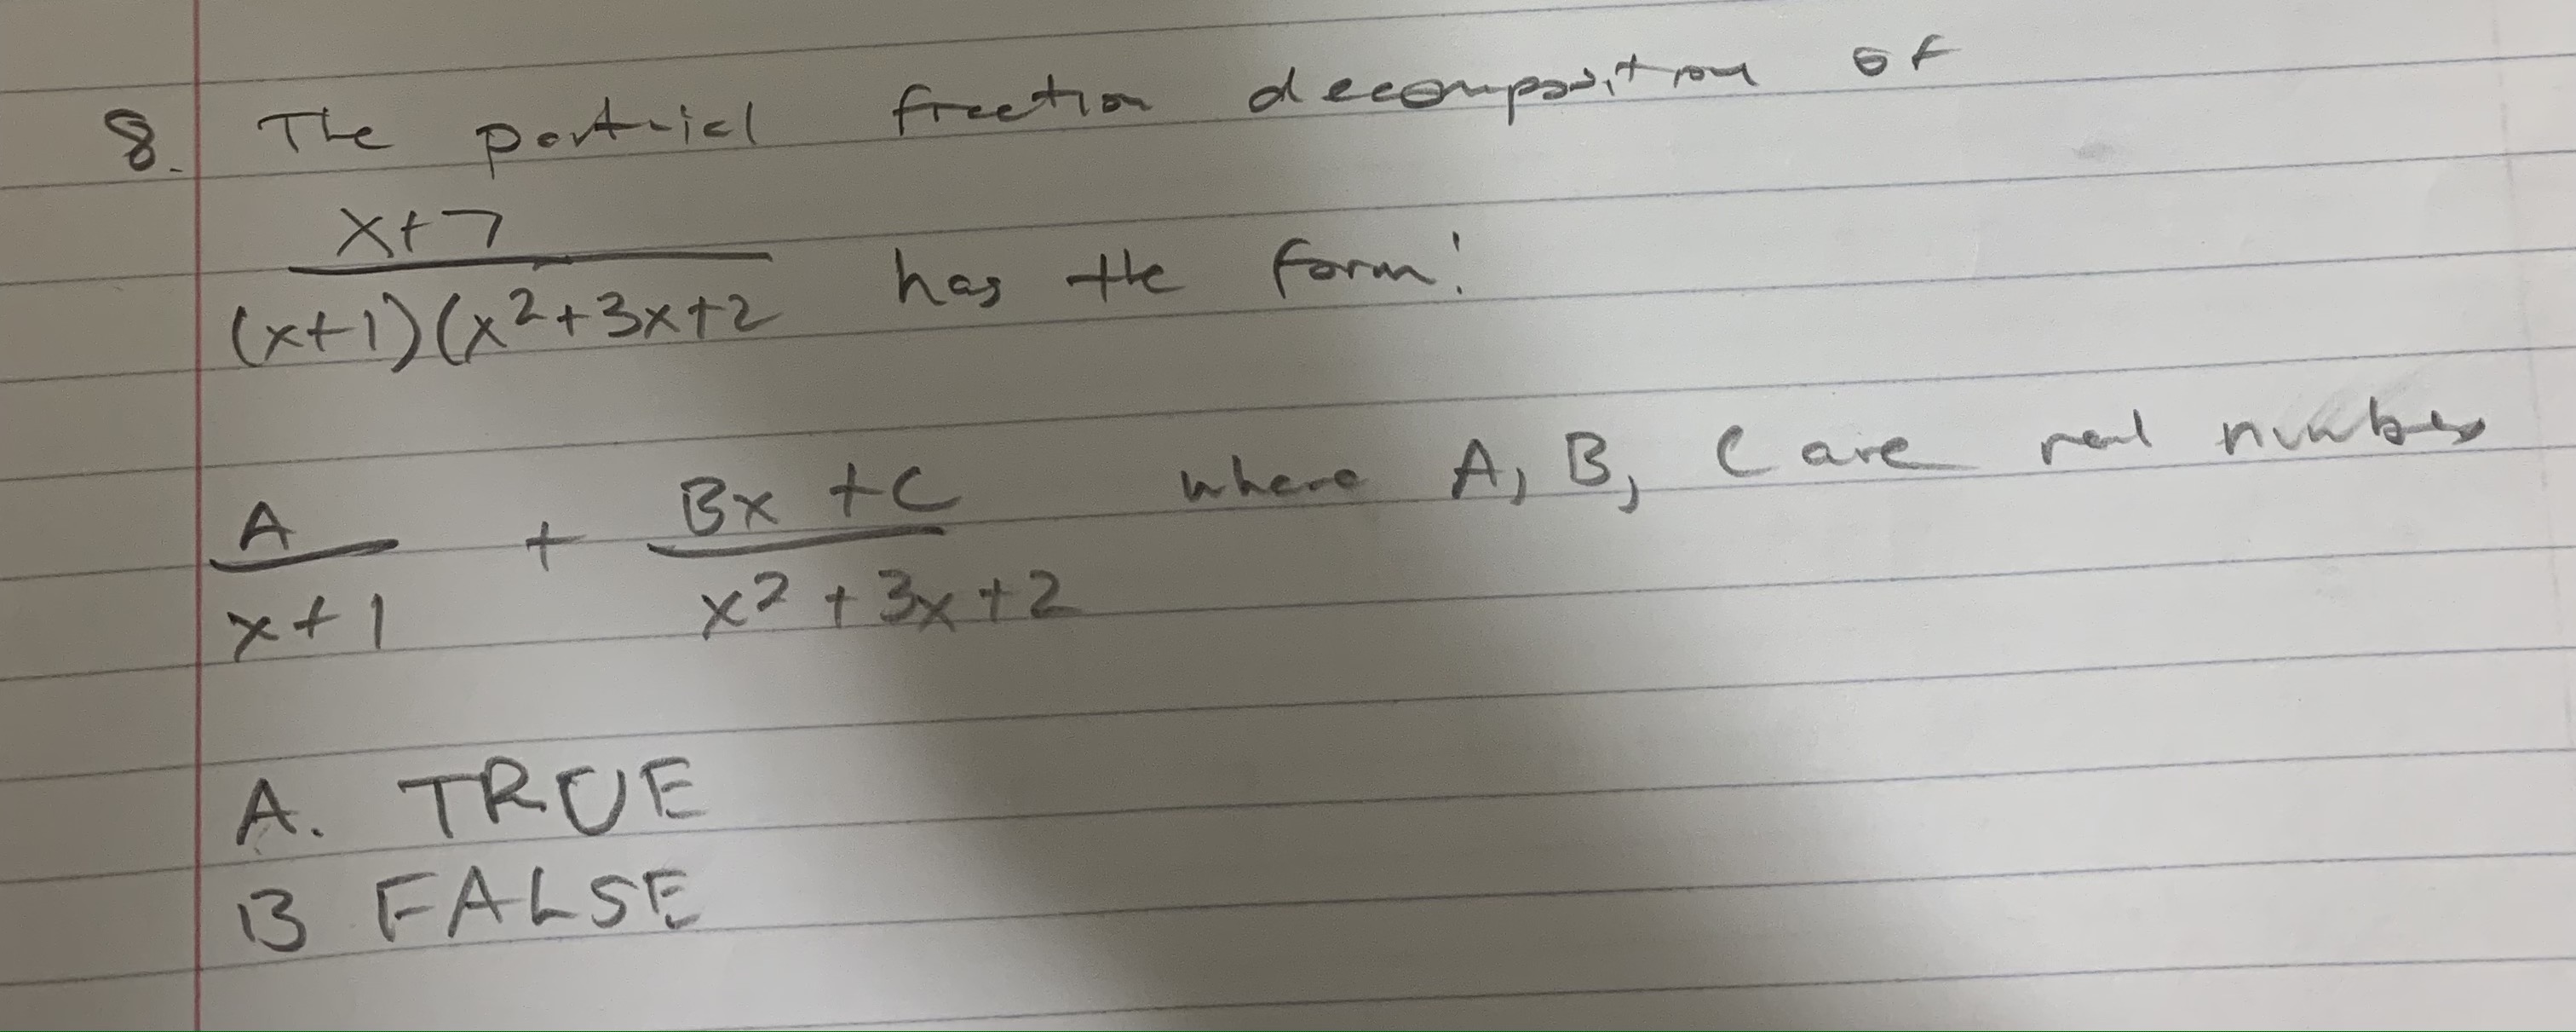 8. The partial fraction decomposition of
x+7
(x+1)(x²+3x+2 has the form:
A/(x+1) + (Bx+C)/(x²+3x+2) where A, B, C are real numbers
A. TRUE
B FALSE